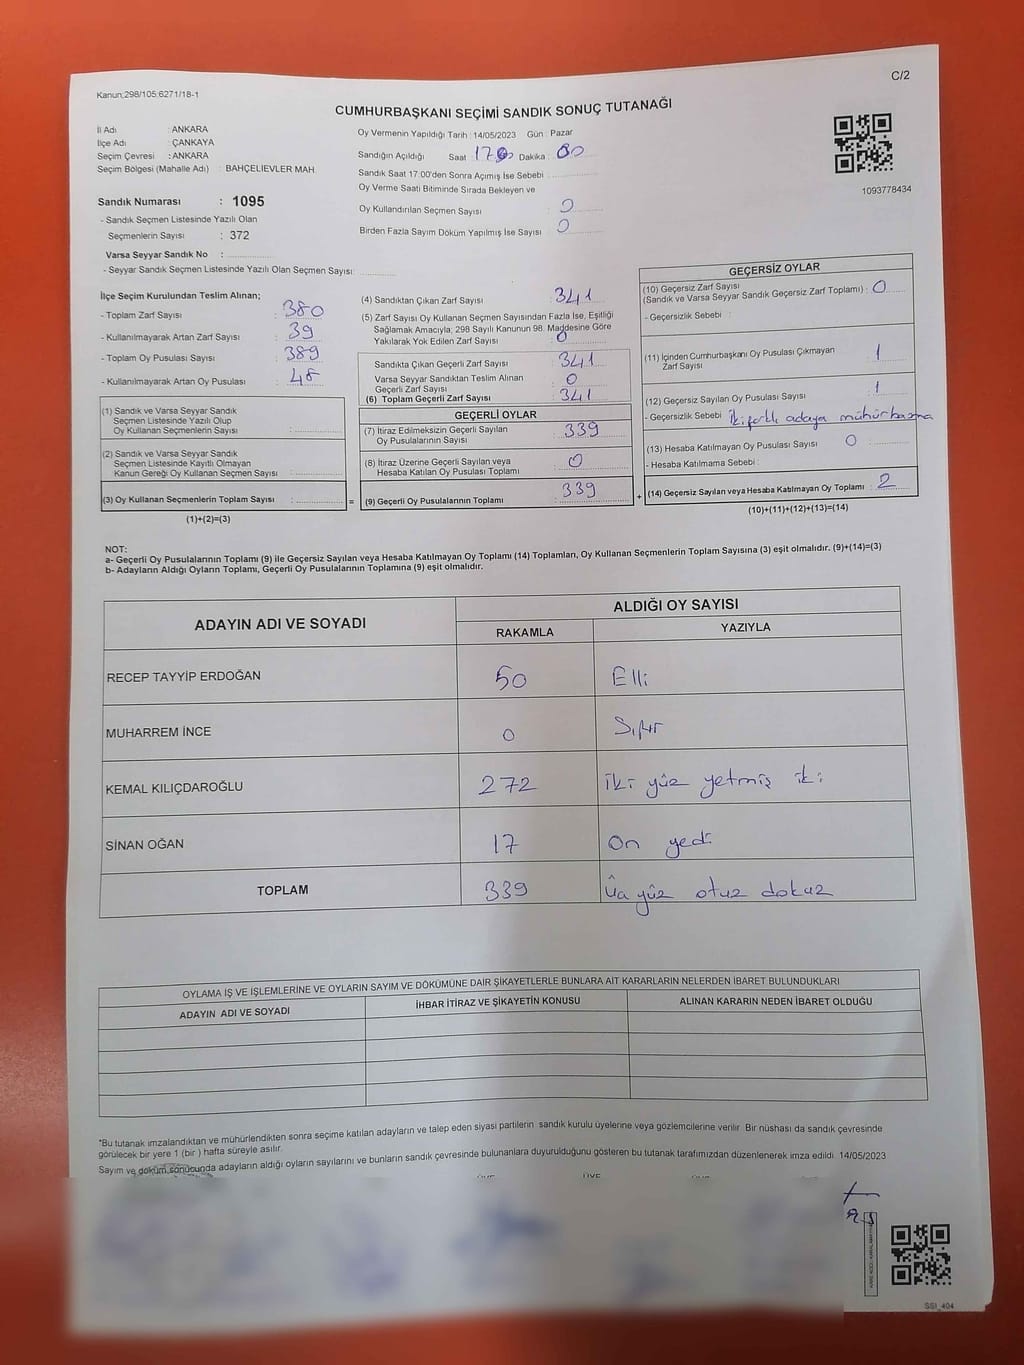 Kanun:298/105:6271/18-1
C/2
CUMHURBAŞKANI SEÇİMİ SANDIK SONUÇ TUTANAĞI
İl Adı : ANKARA
İlçe Adı : ÇANKAYA
Seçim Çevresi : ANKARA
Seçim Bölgesi (Mahalle Adı) : BAHÇELİEVLER MAH
Sandık Numarası : 1095
- Sandık Seçmen Listesinde Yazılı Olan
Seçmenlerin Sayısı : 372
Varsa Seyyar Sandık No :
- Seyyar Sandık Seçmen Listesinde Yazılı Olan Seçmen Sayısı:
Oy Vermenin Yapıldığı Tarih : 14/05/2023 Gün : Pazar
Sandığın Açıldığı Saat : 17 Dakika : 00
Sandık Saat 17:00'den Sonra Açımış İse Sebebi :
Oy Verme Saati Bitiminde Sırada Bekleyen ve
Oy Kullandırılan Seçmen Sayısı : 0
Birden Fazla Sayım Döküm Yapılmış İse Sayısı : 0
1093778434
İlçe Seçim Kurulundan Teslim Alınan;
- Toplam Zarf Sayısı : 380
- Kullanılmayarak Artan Zarf Sayısı : 39
- Toplam Oy Pusulası Sayısı : 389
- Kullanılmayarak Artan Oy Pusulası : 48
(1) Sandık ve Varsa Seyyar Sandık
Seçmen Listesinde Yazılı Olup
Oy Kullanan Seçmenlerin Sayısı :
(2) Sandık ve Varsa Seyyar Sandık
Seçmen Listesinde Kayıtlı Olmayan
Kanun Gereği Oy Kullanan Seçmen Sayısı :
(3) Oy Kullanan Seçmenlerin Toplam Sayısı : =
(1)+(2)=(3)
(4) Sandıktan Çıkan Zarf Sayısı : 341
(5) Zarf Sayısı Oy Kullanan Seçmen Sayısından Fazla İse, Eşitliği
Sağlamak Amacıyla; 298 Sayılı Kanunun 98. Maddesine Göre
Yakılarak Yok Edilen Zarf Sayısı : 0
Sandıkta Çıkan Geçerli Zarf Sayısı : 341
Varsa Seyyar Sandıktan Teslim Alınan
Geçerli Zarf Sayısı : 0
(6) Toplam Geçerli Zarf Sayısı : 341
GEÇERLİ OYLAR
(7) İtiraz Edilmeksizin Geçerli Sayılan
Oy Pusulalarının Sayısı : 339
(8) İtiraz Üzerine Geçerli Sayılan veya
Hesaba Katılan Oy Pusulası Toplamı : 0
(9) Geçerli Oy Pusulalarının Toplamı : 339 +
GEÇERSİZ OYLAR
(10) Geçersiz Zarf Sayısı
(Sandık ve Varsa Seyyar Sandık Geçersiz Zarf Toplamı) : 0
- Geçersizlik Sebebi :
(11) İçinden Cumhurbaşkanı Oy Pusulası Çıkmayan
Zarf Sayısı : 1
(12) Geçersiz Sayılan Oy Pusulası Sayısı : 1
- Geçersizlik Sebebi : İki farklı adaya mühür basma
(13) Hesaba Katılmayan Oy Pusulası Sayısı : 0
- Hesaba Katılmama Sebebi :
(14) Geçersiz Sayılan veya Hesaba Katılmayan Oy Toplamı : 2
(10)+(11)+(12)+(13)=(14)
NOT:
a- Geçerli Oy Pusulalarının Toplamı (9) ile Geçersiz Sayılan veya Hesaba Katılmayan Oy Toplamı (14) Toplamları, Oy Kullanan Seçmenlerin Toplam Sayısına (3) eşit olmalıdır. (9)+(14)=(3)
b- Adayların Aldığı Oyların Toplamı, Geçerli Oy Pusulalarının Toplamına (9) eşit olmalıdır.
ADAYIN ADI VE SOYADI
ALDIĞI OY SAYISI
RAKAMLA YAZIYLA
RECEP TAYYİP ERDOĞAN 50 Elli
MUHARREM İNCE 0 Sıfır
KEMAL KILIÇDAROĞLU 272 İki yüz yetmiş iki
SİNAN OĞAN 17 On yedi
TOPLAM 339 Üç yüz otuz dokuz
OYLAMA İŞ VE İŞLEMLERİNE VE OYLARIN SAYIM VE DÖKÜMÜNE DAİR ŞİKAYETLERLE BUNLARA AİT KARARLARIN NELERDEN İBARET BULUNDUKLARI
ADAYIN ADI VE SOYADI İHBAR İTİRAZ VE ŞİKAYETİN KONUSU ALINAN KARARIN NEDEN İBARET OLDUĞU
*Bu tutanak imzalandıktan ve mühürlendikten sonra seçime katılan adayların ve talep eden siyasi partilerin sandık kurulu üyelerine veya gözlemcilerine verilir. Bir nüshası da sandık çevresinde
görülecek bir yere 1 (bir ) hafta süreyle asılır.
Sayım ve döküm sonucunda adayların aldığı oyların sayılarını ve bunların sandık çevresinde bulunanlara duyurulduğunu gösteren bu tutanak tarafımızdan düzenlenerek imza edildi. 14/05/2023
SSI_404